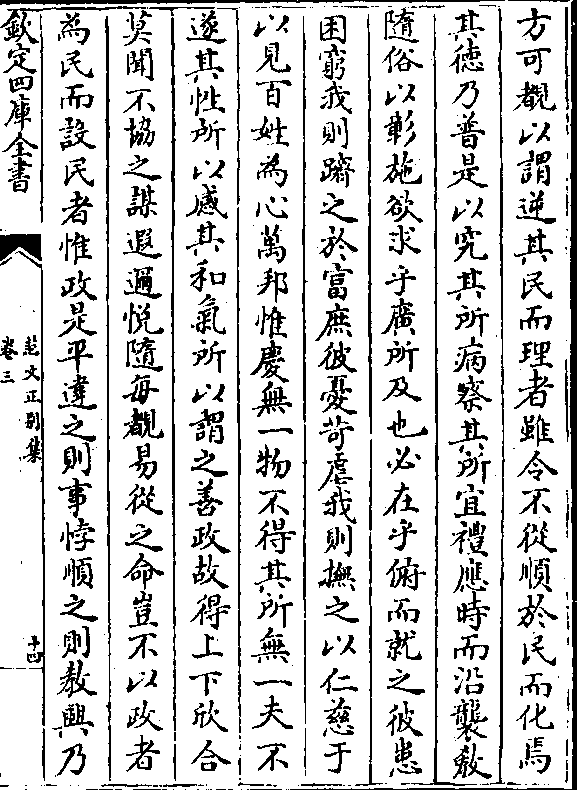 方可觀以謂逆其民而理者雖令不從順於民而化焉
其徳乃普是以究其所病察其所宜禮應時而沿襲教
隨俗以彰施欲求乎廣所及也必在乎俯而就之彼患
困窮我則躋之於富庶彼憂苛虐我則撫之以仁慈于
以見百姓為心萬邦惟慶無一物不得其所無一夫不
遂其性所以感其和氣所以謂之善政故得上下欣合
莫聞不協之謀遐邇悅隨每觀易從之命豈不以政者
為民而設民者惟政是平違之則事悖順之則教興乃
欽定四庫全書
范文正别集
卷三
十四